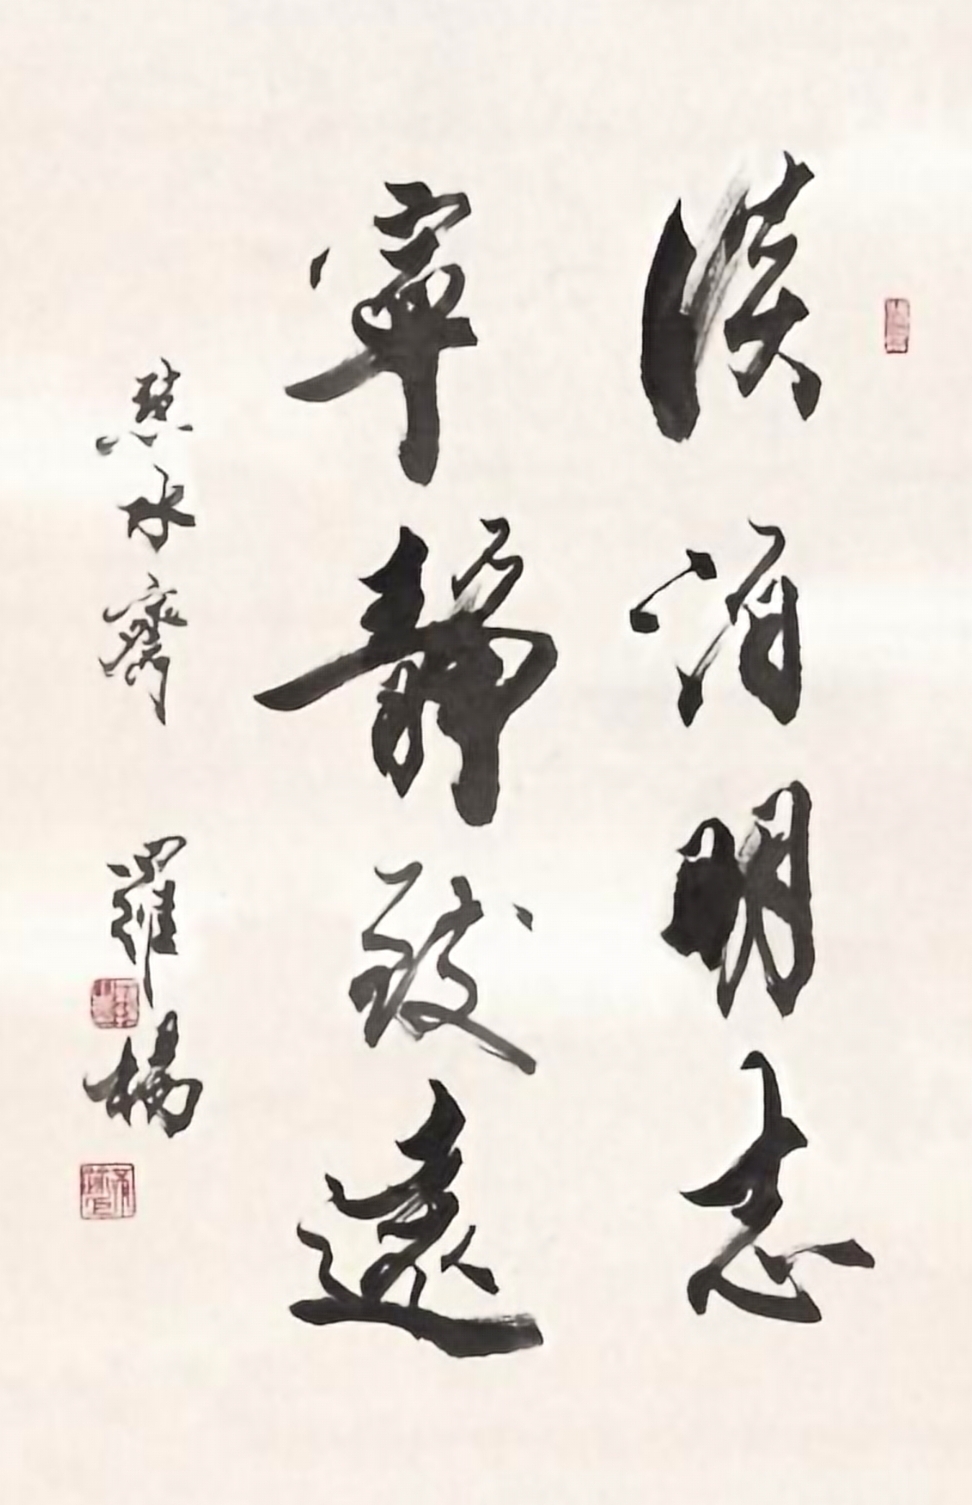 淡泊明志
寧靜致遠
水齋 羅楊